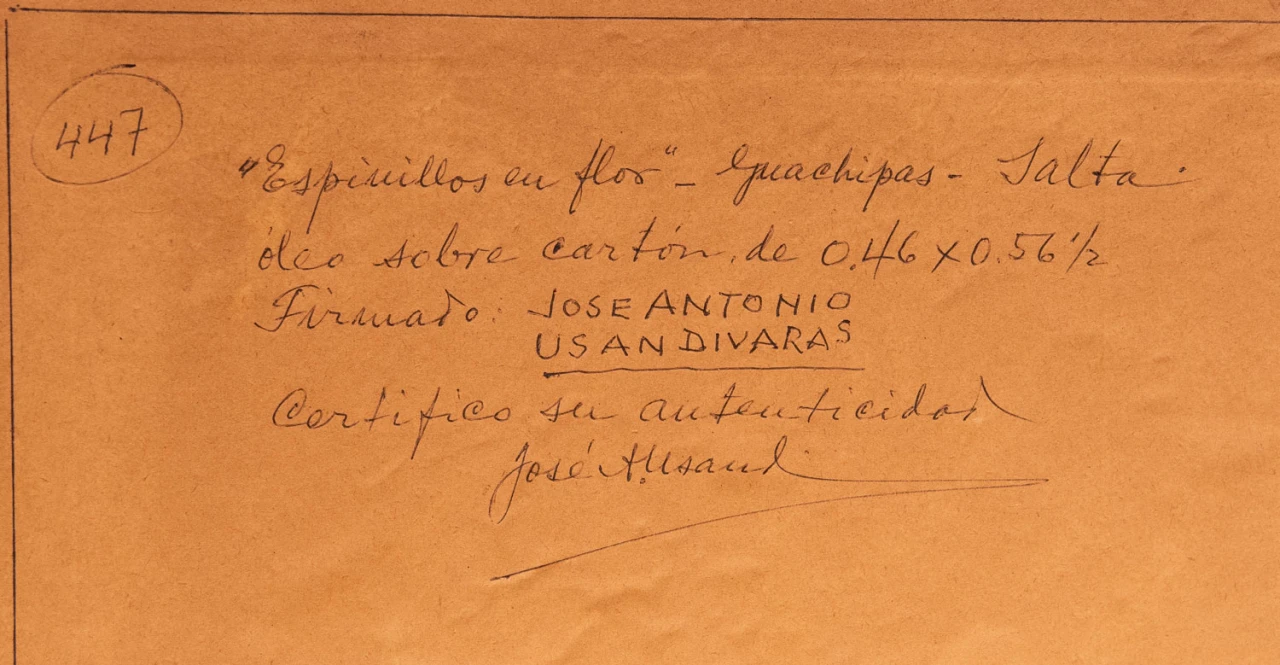 447
"Espinillos en flor" - Guachipas - Salta.
óleo sobre cartón. de 0.46 x 0.56 ½
Firmado: JOSE ANTONIO
USANDIVARAS
Certifico su autenticidad
José A. Usand